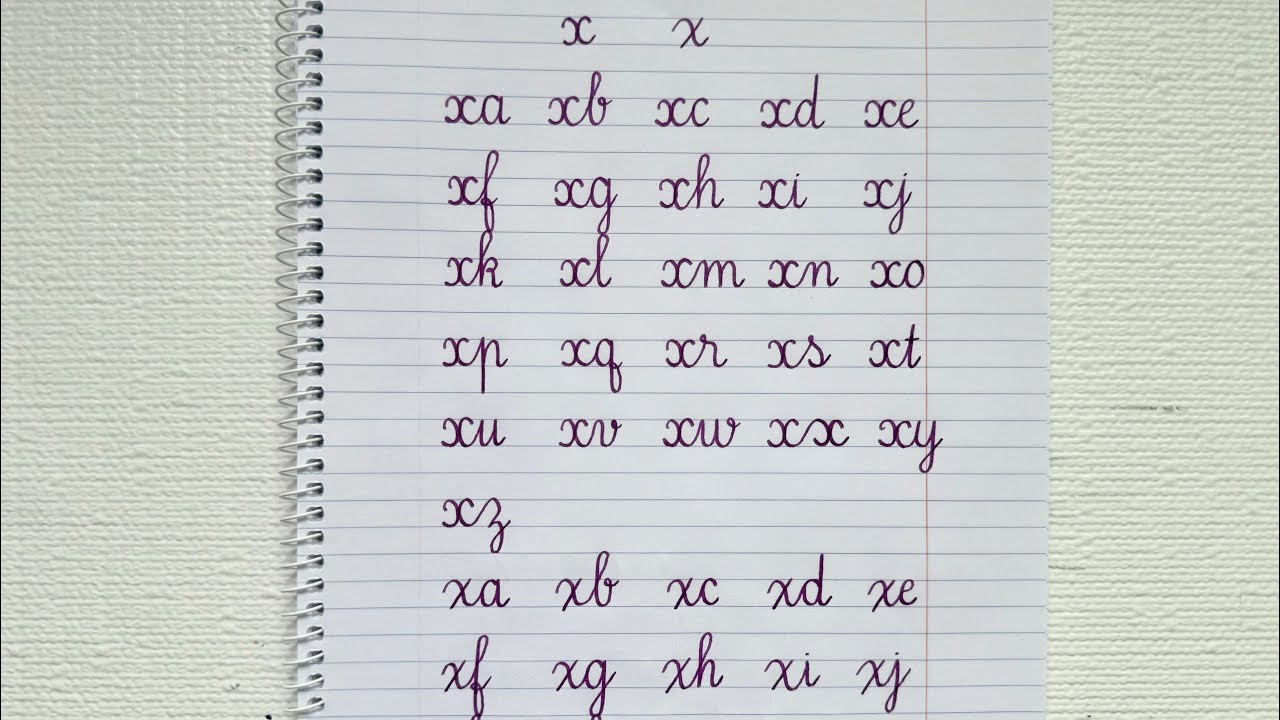 x x
xa xb xc xd xe
xf xg xh xi xj
xk xl xm xn xo
xp xq xr xs xt
xu xv xw xx xy
xz
xa xb xc xd xe
xf xg xh xi xj